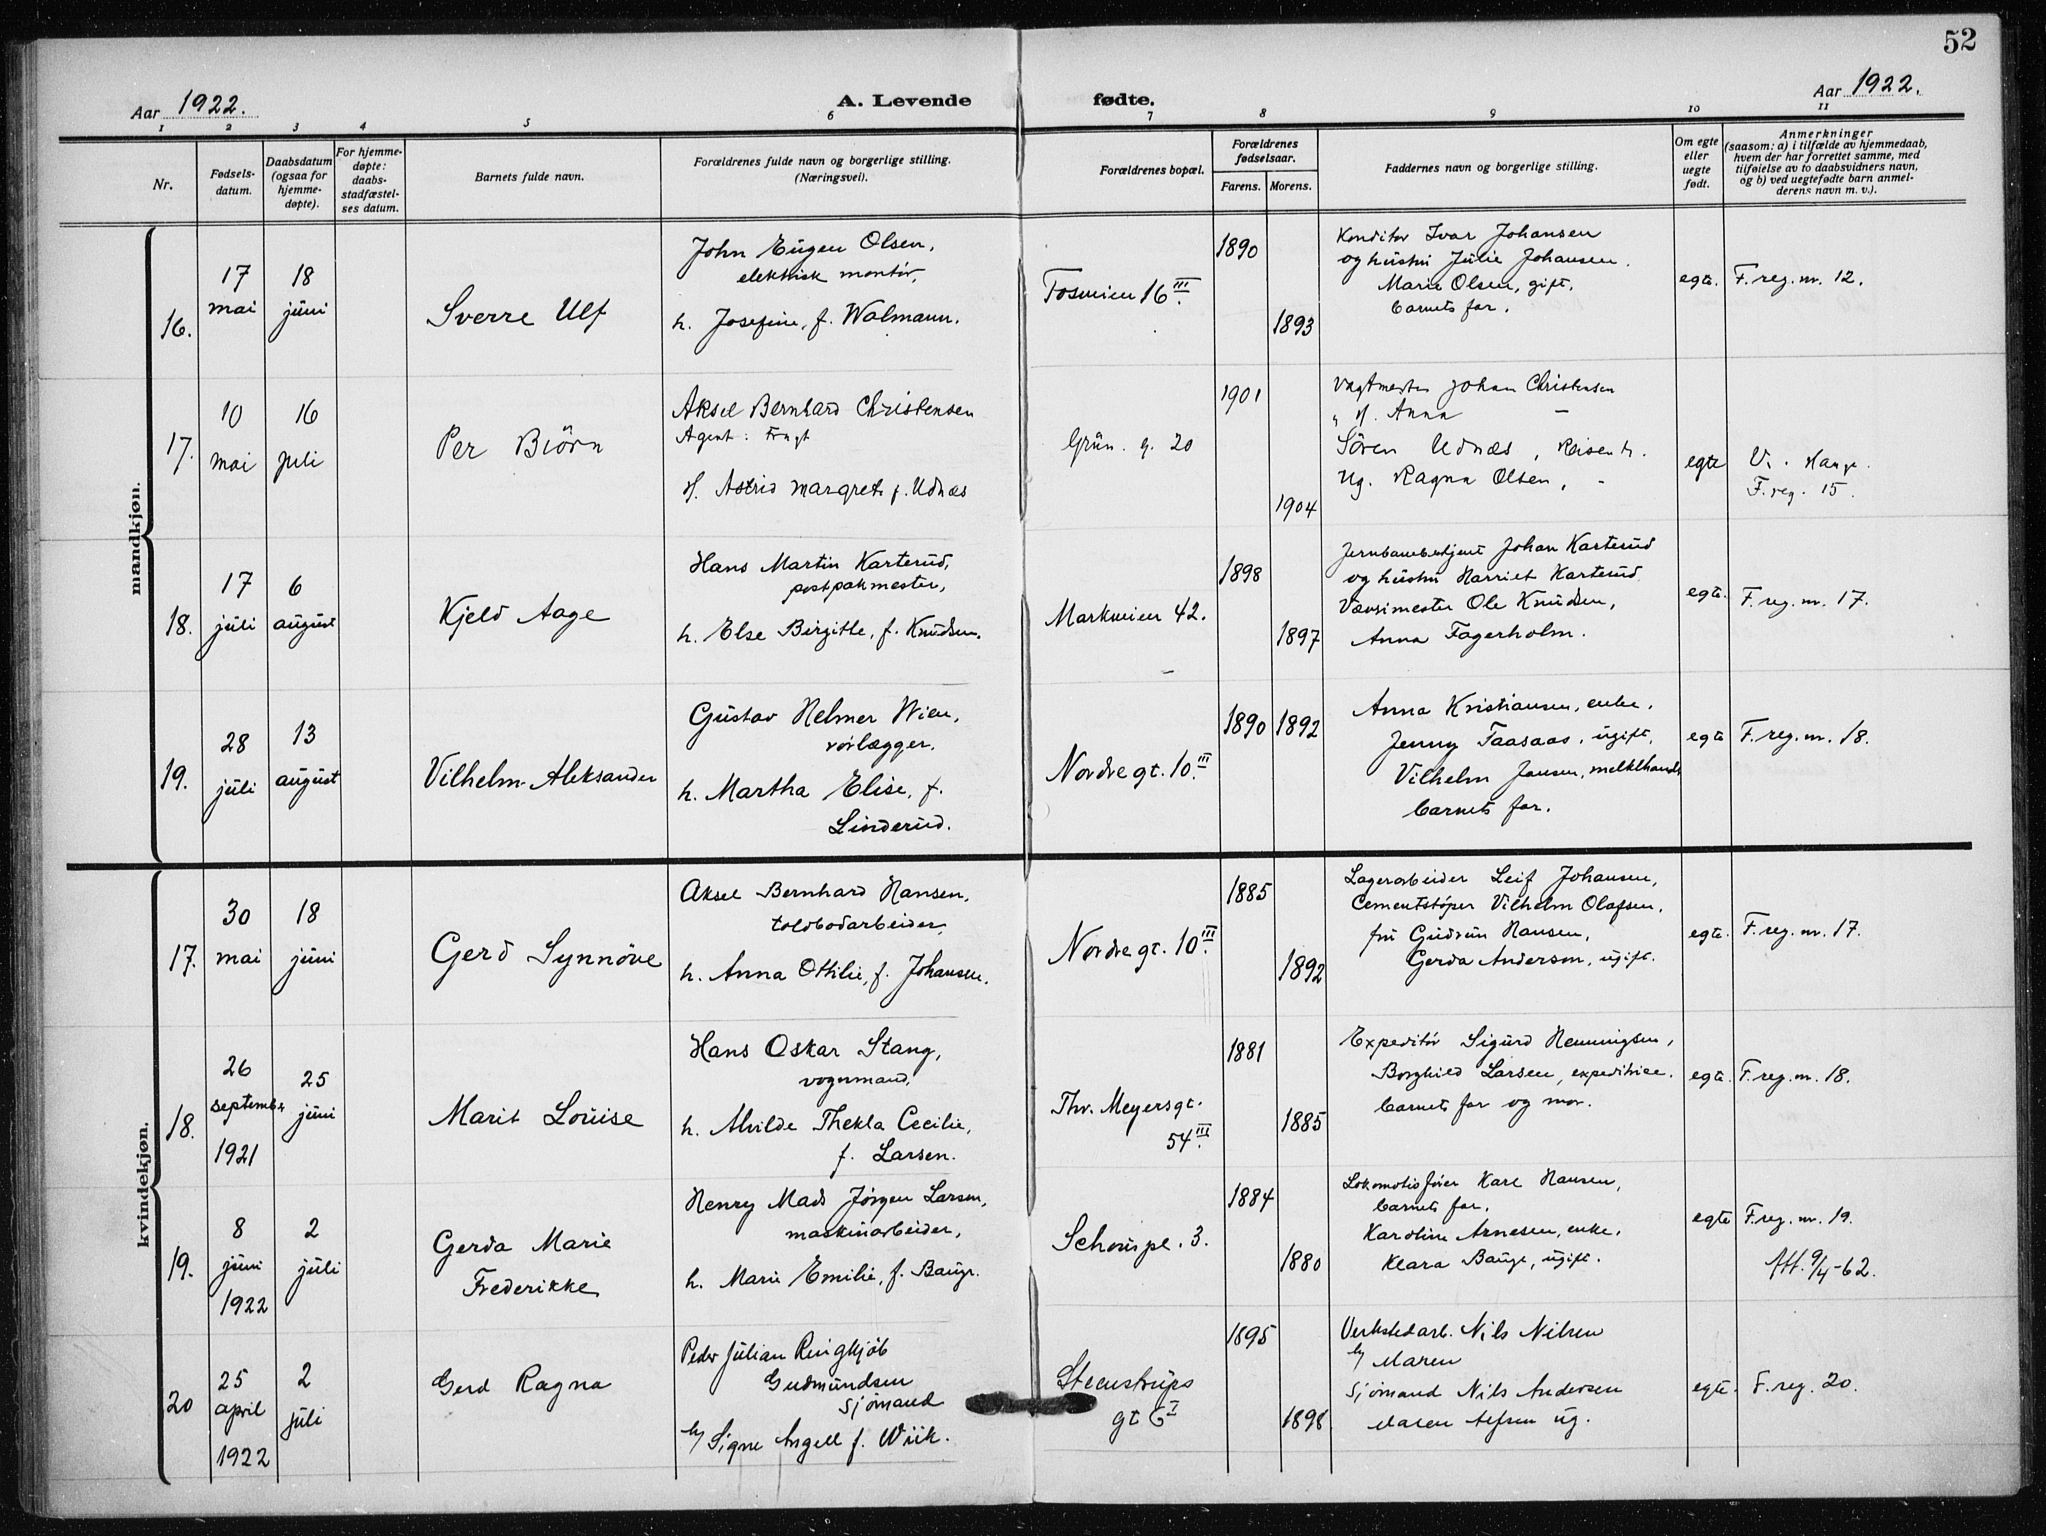 52
Aar 1922.
A. Levende fødte.
Aar 1922.
1 2 3 4 5 6 7 8 9 10 11
Nr.
Fødsels-
datum.
Daabsdatum
(ogsaa for
hjemme-
døpte).
For hjemme-
døpte:
daabs-
stadfæstel-
ses datum.
Barnets fulde navn.
Forældrenes fulde navn og borgerlige stilling.
(Næringsvei).
Forældrenes bopæl.
Forældrenes
fødselsaar.
Farens. Morens.
Faddernes navn og borgerlige stilling.
Om egte
eller
uegte
født.
Anmerkninger
(saasom: a) i tilfælde av hjemmedaab,
hvem der har forrettet samme, med
tilføielse av to daabsvidners navn,
og b) ved uegtefødte barn anmel-
derens navn m. v.).
mandkjøn.
16.
17
mai
18
juni
Sverre Ulf
John Eugen Olsen,
elektrisk montør,
h. Josefine, f. Walmann.
Tosveien 16 III.
1890
1893
Konditor Ivar Johansen
og hustru Julie Johansen.
Marie Olsen, gift,
barnets far.
egte.
F. reg. nr. 12.
17.
10
mai
16
juli
Per Biörn
Aksel Bernhard Christensen
Agent: Frugt
H. Astrid Margrete f. Udnæs
Grün. g. 20
1901
1904
Vagtmester Johan Christensen
„ H. Anna –
Sören Udnæs, Reisende.
Ug. Ragna Olsen, -
egte
V. . Hauge.
F. reg. 15.
18.
17
juli
6
august
Kjeld Aage
Hans Martin Karterud,
postpakmester,
h. Else Birgitte, f. Knudsen.
Markveien 42.
1898
1897
Jernbanebetjent Johan Karterud
og hustru Harriet Karterud
Vævsimester Ole Knudsen,
Anna Fagerholm.
egte.
F. reg. nr. 17.
19.
28
juli
13
august
Vilhelm Aleksander
Gustav Helmer Wien,
rørlægger.
h. Martha Elise, f.
Linderud.
Nordre gt. 10. III
1890 1892
Anna Kristiansen, enke.
Jenny Taasaas, ugift,
Vilhelm Jansen, melkhandl
barnets far.
egte
F. reg. nr. 18.
kvindekjøn.
17.
30
mai
18
juni
Gerd Synnöve
Aksel Bernhard Hansen,
toldbodarbeider,
h. Anna Othilie, f. Johansen.
Nordre gt. 10. III
1885
1892
Lagerarbeider Leif Johansen,
Cementstøper Vilhelm Olafsen,
fru Gudrun Hansen,
Gerda Anderson, ugift.
egte.
F. reg. nr. 17.
18.
26
september
1921
25
juni
Marit Louise
Hans Oskar Stang,
vognmand,
h. Alvilde Thekla Cecilie,
f. Larsen.
Thv. Meyersgt.
54 III.
1881
1885
Expeditør Sigurd Henningsen,
Borghild Larsen, expeditrice.
barnets far og mor.
egte.
F. reg. nr. 18.
19.
8
juni
1922
2
juli
Gerda Marie
Frederikke
Henry Mads Jørgen Larsen,
maskinarbeider,
h. Marie Emilie, f. Bauge.
Schouspl. 3.
1884
1880
Lokomotivfører Karl Hansen,
barnets far.
Karoline Arnesen, enke.
Klara Bauge, ugift.
egte
F. reg. nr. 19.
Att. 9/4-62.
20
25
april
1922
2
juli
Gerd Ragna
Peder Julian Ringkjöb
Gudmundsen
Sjømand
H/ Signe Angell f. Wiik.
Steenstrups
gt 6 I
1895
1898
Verkstedarb. Nils Nilsen
H/ Maren
Sjømand Nils Andersen
Maren Alfsen ug.
egte.
F. reg. 20.